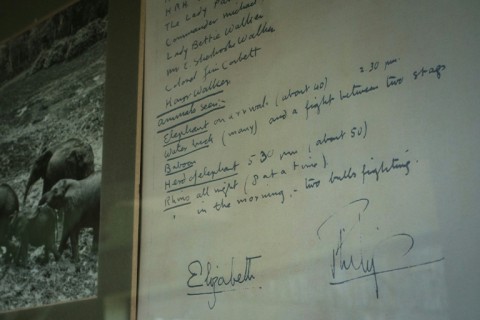 HRH
The Lady Pa
Commander Michael
Lady Bettie Walker
Mr E Sherbrooke Walker
Colonel Jim Corbett
Honor Walker
animals seen:-
Elephant on arrival (about 40) 2.30 pm
Water buck (many) and a fight between two stags
Baboon
Herd of elephant 5.30 pm (about 50)
Rhino all night (8 at a time)
" in the morning - two bulls fighting.
Elizabeth
Philip